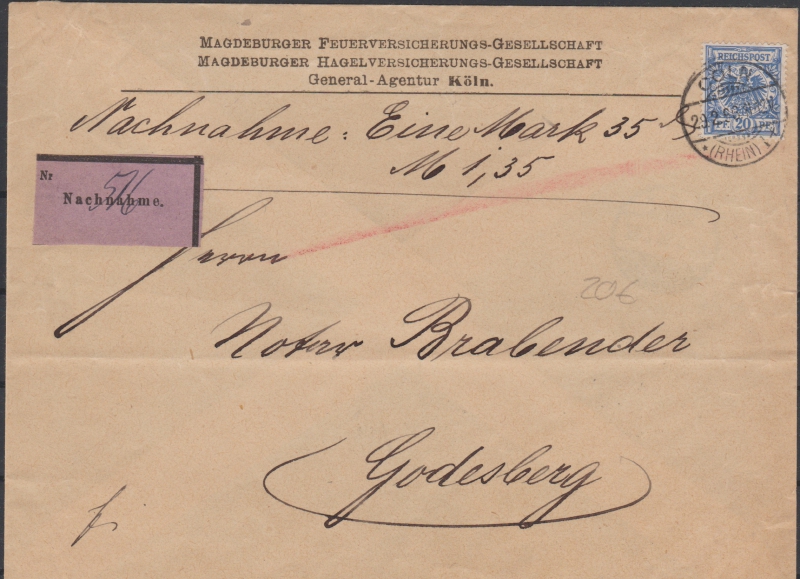 MAGDEBURGER FEUERVERSICHERUNGS-GESELLSCHAFT
MAGDEBURGER HAGELVERSICHERUNGS-GESELLSCHAFT
General-Agentur Köln.
REICHSPOST
20 PF
CÖLN
(RHEIN)
Nachnahme: Eine Mark 35
M 1,35
Nr
Nachnahme.
Herrn
206
Notar Brabender
Godesberg